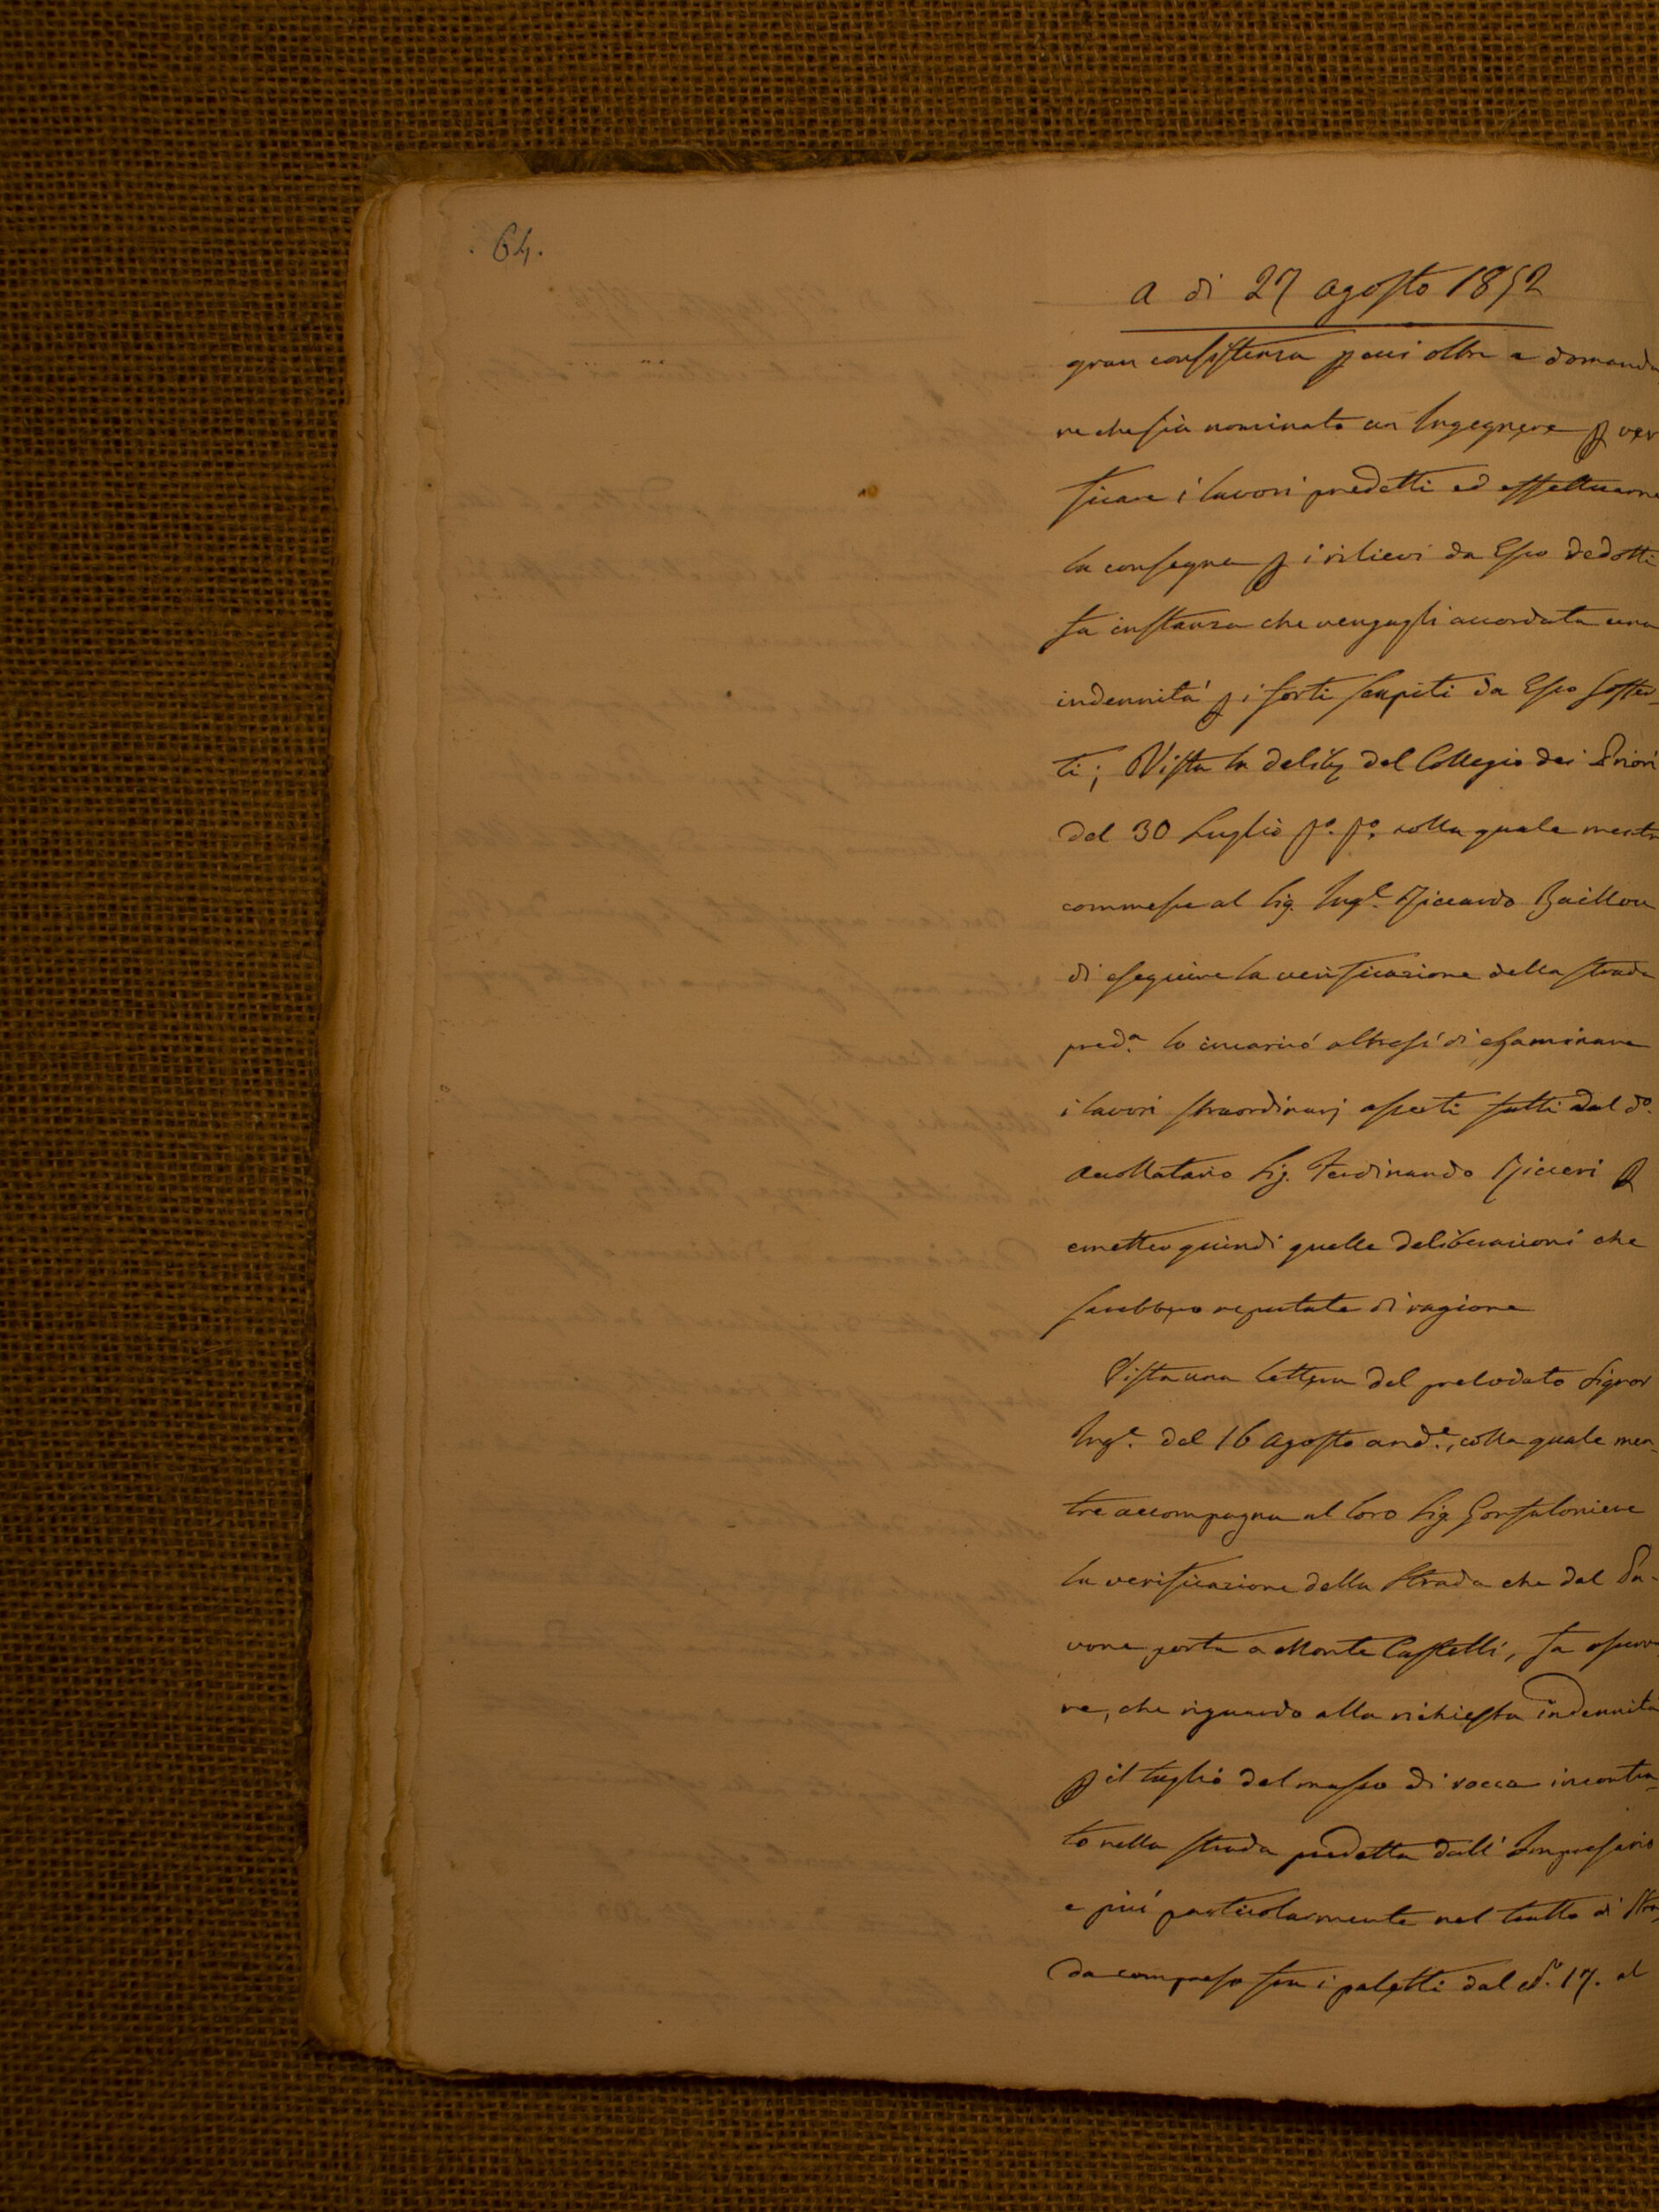 . 64.
a di 27 agosto 1852
gran consistenza p cui oltre a domanda
re che sia nominato un Ingegnere p ver
ficare i lavori predetti ed effettuarne
la consegna p i rilievi da Esso dedotti
fa instanza che vengagli accordata una
indennità p i forti scapiti da Esso soffer-
ti; Vista la delib del Collegio dei Priori
del 30 Luglio po. po. colla quale mentr
commesse al Sig. Inge. Riccardo Baillou
di eseguire la verificazione della strada
preda. lo incaricó altresí di esaminare
i lavori straordinarj asserti fatti dal do.
Accollatario Sig. Ferdinando Ricceri p
emetter quindi quelle deliberazioni che
sarebbero reputate di ragione
Vista una lettera del prelodato Signor
Inge. del 16 Agosto ande., colla quale men-
tre accompagna al loro Sig. Gonfaloniere
la verificazione della Strada che dal Pa-
vone porta a Monte Castelli, fa osserva
re, che riguardo alla richiesta indennita
p il taglio del masso di rocca incontra-
to nella strada predetta dall' Impresario
e piú particolarmente nel tratto di Stra
da compreso fra i paletti dal No. 17. al